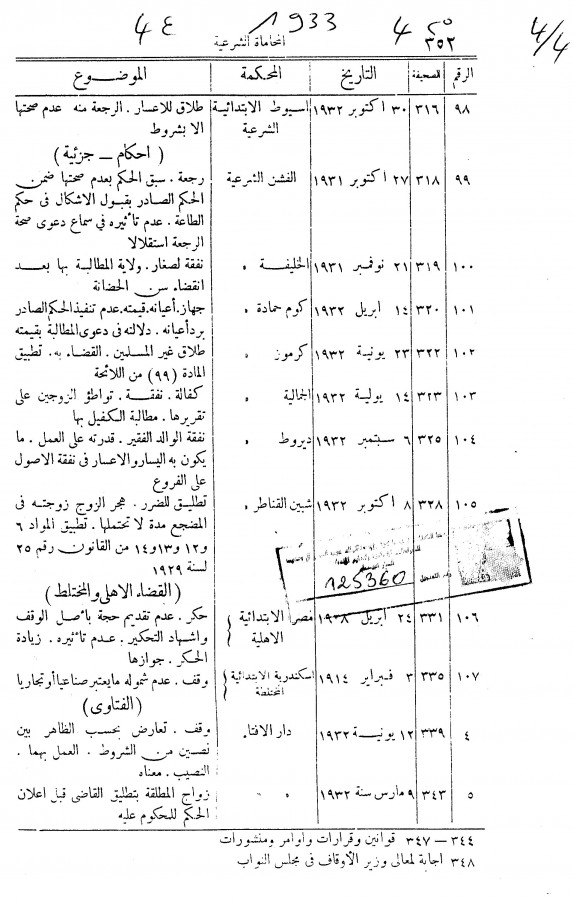 ٤٤ 1933 4 ٢٥ 4/4
المحاماة الشرعية ٣٥٢
الرقم الصحيفة التاريخ المحكمة الموضوع
٩٨ ٣١٦ ٣٠ اكتوبر ١٩٣٢ اسيوط الابتدائية طلاق للاعسار . الرجعة منه عدم صحتها
الشرعية الا بشروط
( احكام — جزئية )
٩٩ ٣١٨ ٢٧ اكتوبر ١٩٣١ الفشن الشرعية رجعة . سبق الحكم بعدم صحتها ضمن
الحكم الصادر بقبول الاشكال فى حكم
الطاعة . عدم تأثيره في سماع دعوى صحة
الرجعة استقلالا
١٠٠ ٣١٩ ٢١ نوفمبر ١٩٣١ الخليفة » نفقة لصغار . ولاية المطالبة بها بعد
انقضاء سن الحضانة
١٠١ ٣٢٠ ١٤ ابريل ١٩٣٢ كوم حمادة » جهاز . أعيانه . قيمته . عدم تنفيذ الحكم الصادر
برد أعيانه . دلالته فى دعوى المطالبة بقيمته
١٠٢ ٣٢٢ ٢٣ يونية ١٩٣٢ كرموز » طلاق غير المسلمين . القضاء به . تطبيق
المادة (٩٩) من اللائحة
١٠٣ ٣٢٣ ١٤ يولية ١٩٣٢ الجمالية » كفالة . نفقة . تواطؤ الزوجين على
تقريرها . مطالبة الكفيل بها
١٠٤ ٣٢٥ ٦ سبتمبر ١٩٣٢ ديروط » نفقة الوالد الفقير . قدرته على العمل . ما
يكون به اليسار والاعسار فى نفقة الاصول
على الفروع
١٠٥ ٣٢٨ ٨ اكتوبر ١٩٣٢ شبين القناطر » تطليق للضرر . هجر الزوج زوجته فى
المضجع مدة لا تحتملها . تطبيق المواد ٦
و١٢ و١٣ و١٤ من القانون رقم ٢٥
لسنة ١٩٢٩
125360
( القضاء الاهلى والمختلط )
١٠٦ ٣٣١ ٢٤ ابريل مصر الابتدائية حكر . عدم تقديم حجة بأصل الوقف
الاهلية واشهاد التحكير . عدم تأثيره . زيادة
الحكر . جوازها
١٠٧ ٣٣٥ ٣ فبراير ١٩١٤ اسكندرية الابتدائية وقف . عدم شموله ما يعتبر صناعيا أو تجاريا
المختلطة
( الفتاوى )
٤ ٣٣٩ ١٢ يونية ١٩٢٢ دار الافتاء وقف . تعارض بحسب الظاهر بين
نصين من الشروط . العمل بهما .
النصيب . معناه
٥ ٣٤٣ ٩ مارس سنة ١٩٣٢ » » زواج المطلقة بتطليق القاضى قبل اعلان
الحكم للمحكوم عليه
٣٤٤ — ٣٤٧ قوانين وقرارات واوامر ومنشورات
٣٤٨ اجابة لمعالى وزير الأوقاف فى مجلس النواب